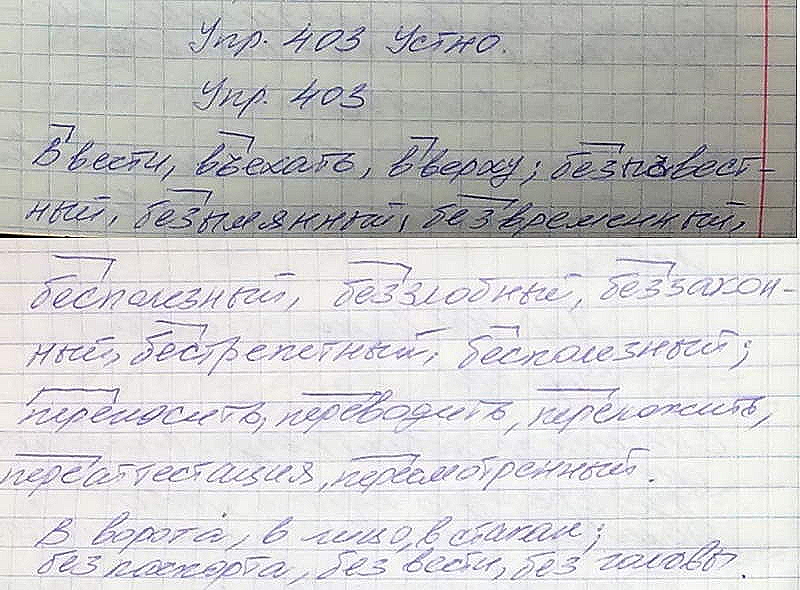 Упр. 403 Устно.
Упр. 403
Ввести, въехать, вверху; безызвест-
ный, безымянный, безвременный,
бесполезный, беззлобный, беззакон-
ный, бестрепетный, бесполезный;
переносить, переводить, переложить,
переаттестация, пересмотренный.
В ворота, в лицо, в стакан;
без паспорта, без вести, без головы.